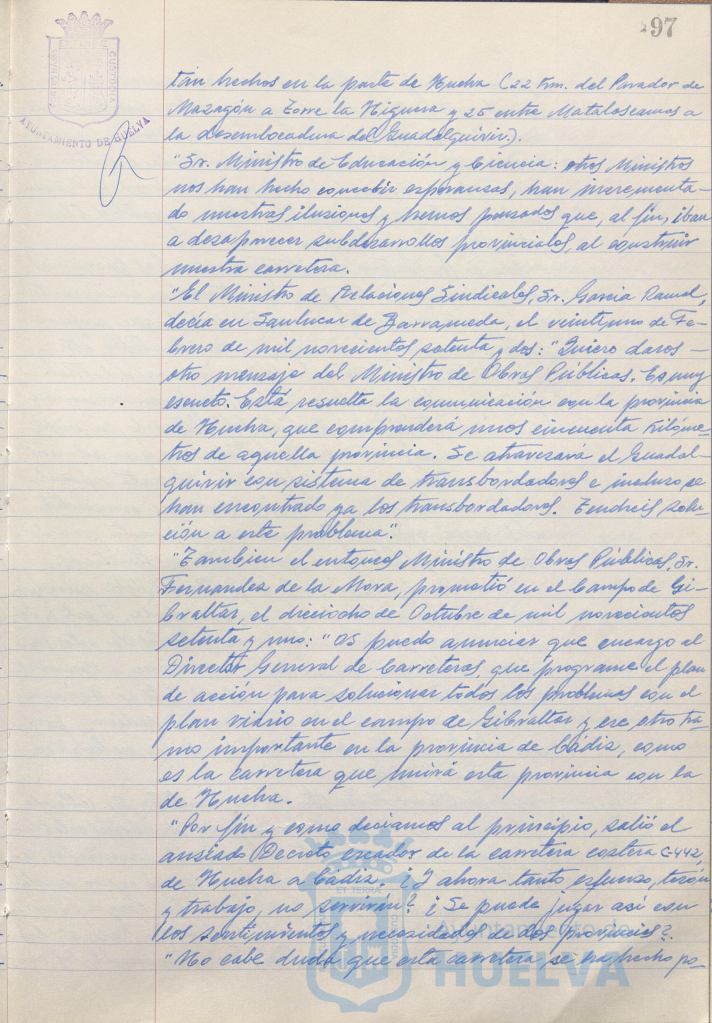 297
AYUNTAMIENTO DE HUELVA
tán hechos en la parte de Huelva (22 Km. del Parador de
Mazagón a Torre la Higuera y 25 entre Matalascañas a
la desembocadura del Guadalquivir.).
"Sr. Ministro de Educación y Ciencia: otros Ministros
nos han hecho concebir esperanzas, han incrementa-
do nuestras ilusiones y hemos pensados que, al fin, iban
a desaparecer subdesarrollos provinciales, al construir
nuestra carretera.
"El Ministro de Relaciones Sindicales, Sr. García Ramal,
decía en Sanlucar de Barrameda, el veintiuno de Fe-
brero de mil novecientos setenta y dos: "Quiero daros –
otro mensaje del Ministro de Obras Públicas. Es muy
escueto. Está resuelta la comunicación con la provincia
de Huelva, que comprenderá unos cincuenta Kilóme-
tros de aquella provincia. Se atravesará el Guadal-
quivir con sistema de transbordadores e incluso se
han encontrado ya los transbordadores. Tendreis solu-
ción a este problema".
"Tambien el entonces Ministro de Obras Públicas, Sr.
Fernandez de la Mora, prometió en el Campo de Gi-
braltar, el dieciocho de Octubre de mil novecientos
setenta y uno: "Os puedo anunciar que encargo al
Director General de Carreteras que programe el plan
de acción para solucionar todos los problemas con el
plan viario en el campo de Gibraltar y ese otro tra-
mo importante en la provincia de Cádiz, como
es la carretera que unirá esta provincia con la
de Huelva.
"Por fin y como decíamos al principio, salió el
ansiado Decreto creador de la carretera costera C-442,
de Huelva a Cádiz. ¿Y ahora tanto esfuerzo, tesón
y trabajo, no servirán? ¿Se puede jugar así con
los sentimientos y necesidades de dos provincias?.
"No cabe duda que esta carretera se ha hecho po-
HUELVA